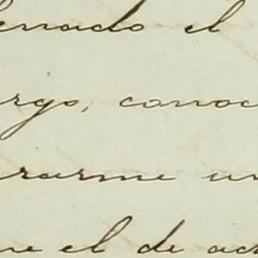 enado el
rgo, conoc
rarme un
ne el de ac